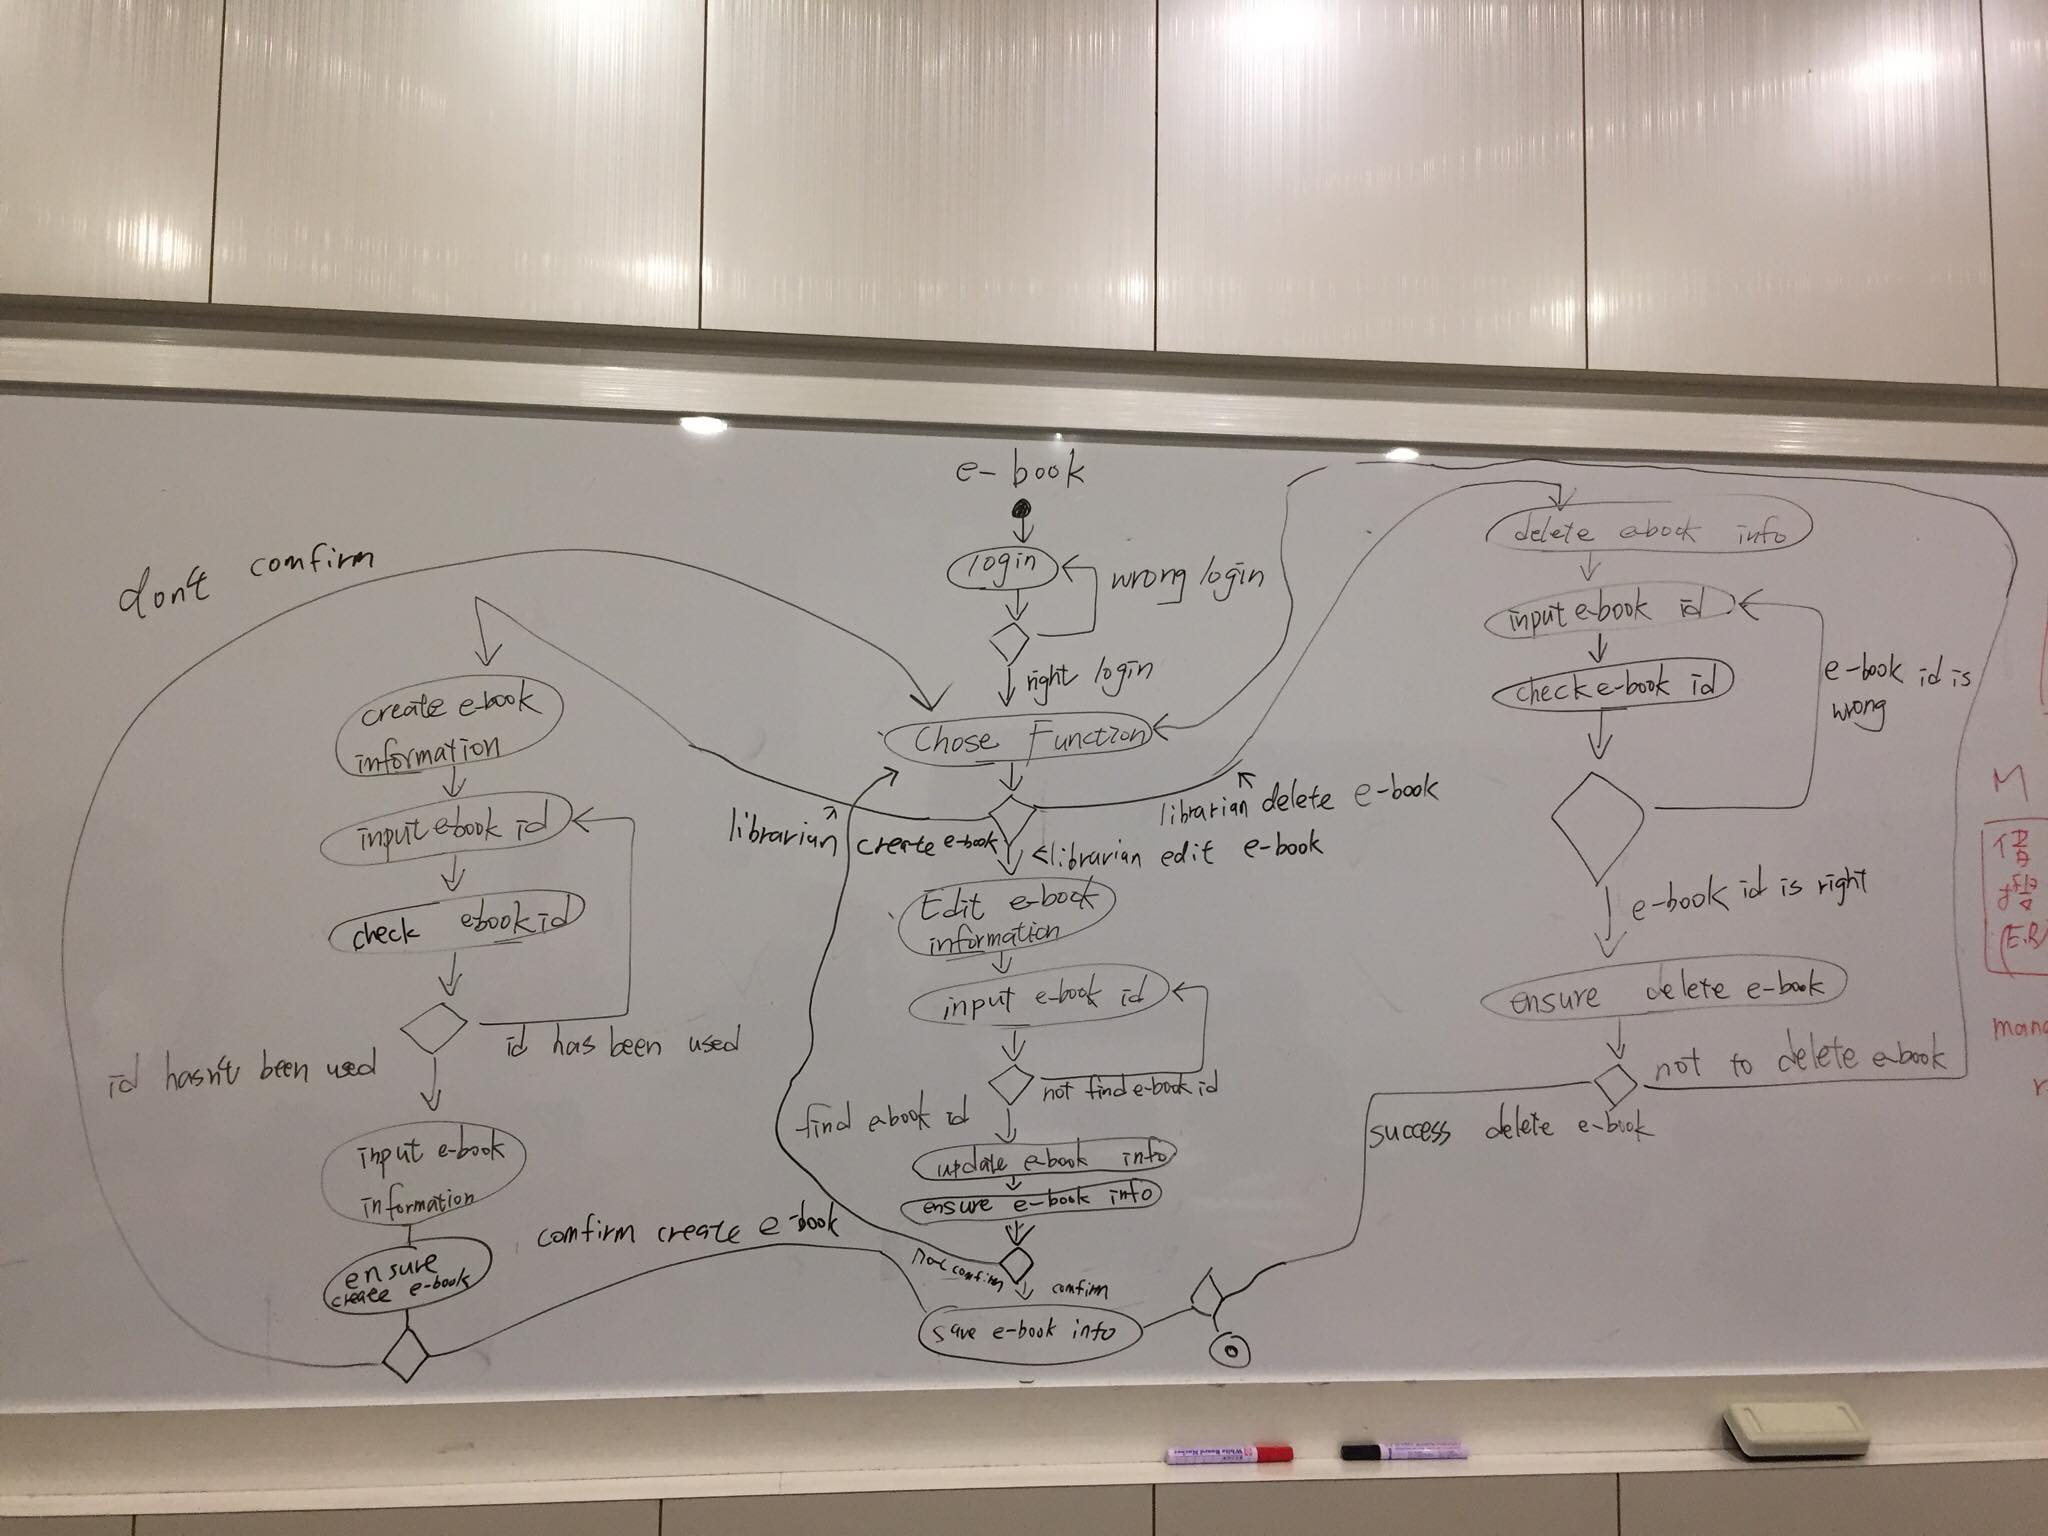 e-book
login
wrong login
right login
Chose Function
librarian create e-book
librarian delete e-book
librarian edit e-book
don't comfirm
create e-book
information
input e-book id
check ebook id
id has been used
id hasn't been used
input e-book
information
ensure
create e-book
comfirm create e-book
Edit e-book
information
input e-book id
not find e-book id
find ebook id
update e-book info
ensure e-book info
comfirm
save e-book info
delete ebook info
input e-book id
check e-book id
e-book id is
wrong
e-book id is right
ensure delete e-book
not to delete e-book
success delete e-book
M
mana
White Board Marker